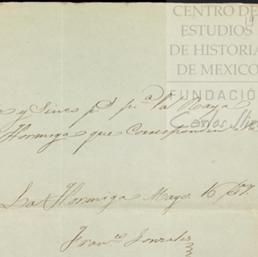 CENTRO DE
ESTUDIOS
DE HISTORIA
DE MEXICO
FUNDACIÓ
Carlos Slim
y Cinco ps pa la Raya
Hormiga que Corresponden
La Hormiga Mayo 16/67.
Franco Gonzales